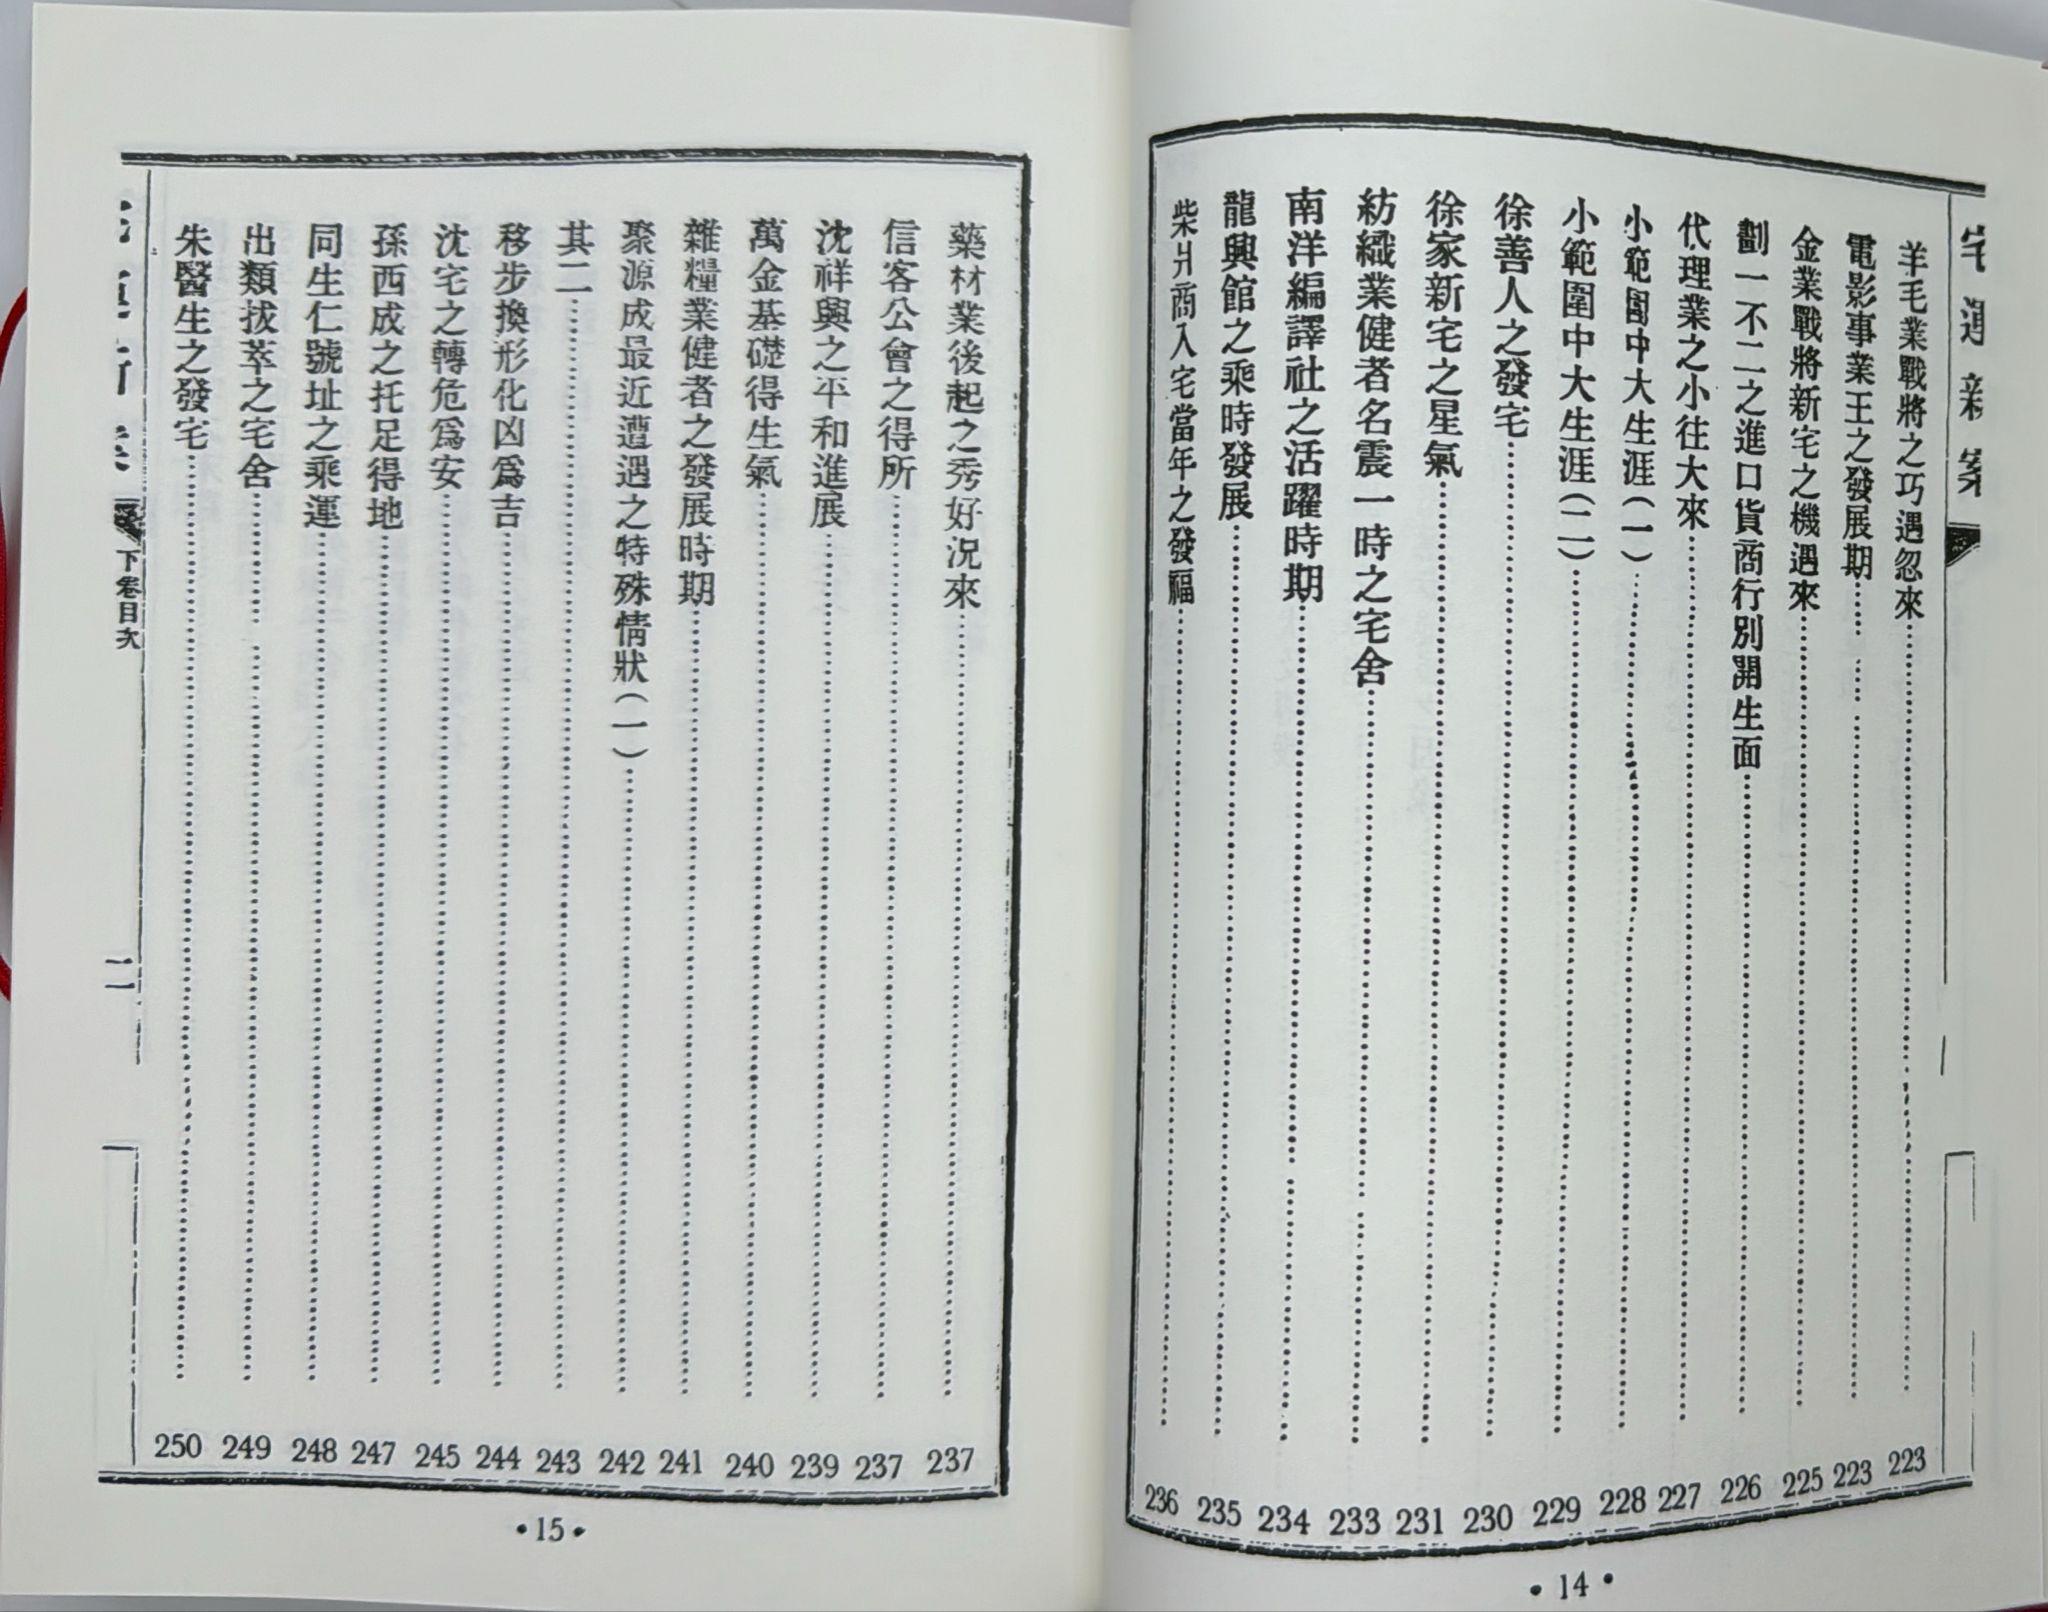 宅運新案
羊毛業戰將之巧遇忽來 223
電影事業王之發展期 223
金業戰將新宅之機遇來 225
劃一不二之進口貨商行別開生面 226
代理業之小往大來 227
小範圍中大生涯(一) 228
小範圍中大生涯(二) 229
徐善人之發宅 230
徐家新宅之星氣 231
紡織業健者名震一時之宅舍 233
南洋編譯社之活躍時期 234
龍興館之乘時發展 235
柴爿商入宅當年之發福 236
•14•
藥材業後起之秀好況來 237
信客公會之得所 237
沈祥興之平和進展 239
萬金基礎得生氣 240
雜糧業健者之發展時期 241
聚源成最近遭遇之特殊情狀(一) 242
其二 243
移步換形化凶為吉 244
沈宅之轉危為安 245
孫西成之托足得地 247
同生仁號址之乘運 248
出類拔萃之宅舍 249
朱醫生之發宅 250
下卷目次
二
•15•